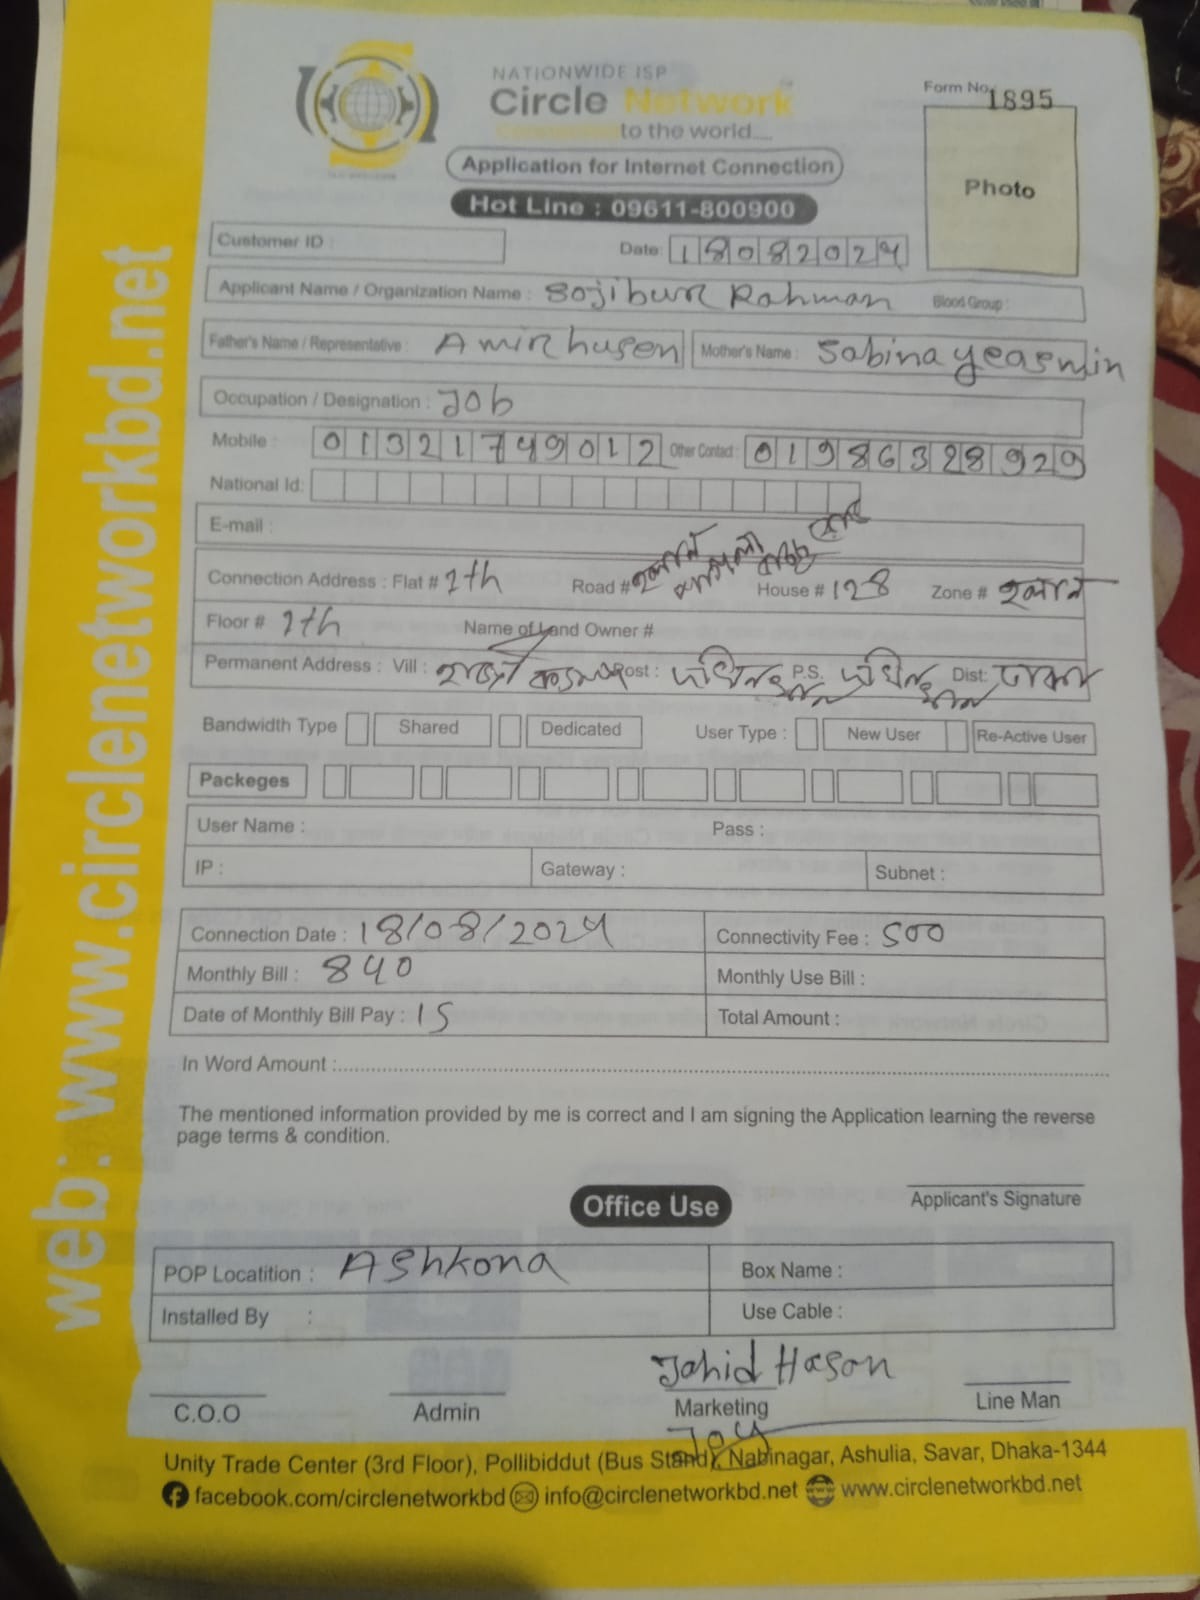 NATIONWIDE ISP
Circle Network
Connected to the world....
Form No. 1895
Photo
Application for Internet Connection
Hot Line : 09611-800900
Customer ID :
Date: 18082024
Applicant Name / Organization Name : Sojibur Rahman Blood Group :
Father's Name / Representative : Amir husen Mother's Name : Sabina yeasmin
Occupation / Designation : Job
Mobile : 01321749012 Other Contact : 01986328929
National Id:
E-mail :
Connection Address : Flat # 7th Road # House # 128 Zone #
Floor # 7th Name of Land Owner #
Permanent Address : Vill : Post : P.S. Dist: ঢাকা
Bandwidth Type Shared Dedicated User Type : New User Re-Active User
Packeges
User Name : Pass :
IP : Gateway : Subnet :
Connection Date : 18/08/2024 Connectivity Fee : 500
Monthly Bill : 840 Monthly Use Bill :
Date of Monthly Bill Pay : 15 Total Amount :
In Word Amount :
The mentioned information provided by me is correct and I am signing the Application learning the reverse
page terms & condition.
Applicant's Signature
Office Use
POP Locatition : Ashkona Box Name :
Installed By : Use Cable :
Jahid Hasan
C.O.O Admin Marketing Line Man
Joy
Unity Trade Center (3rd Floor), Pollibiddut (Bus Stand), Nabinagar, Ashulia, Savar, Dhaka-1344
facebook.com/circlenetworkbd info@circlenetworkbd.net www.circlenetworkbd.net
web: www.circlenetworkbd.net